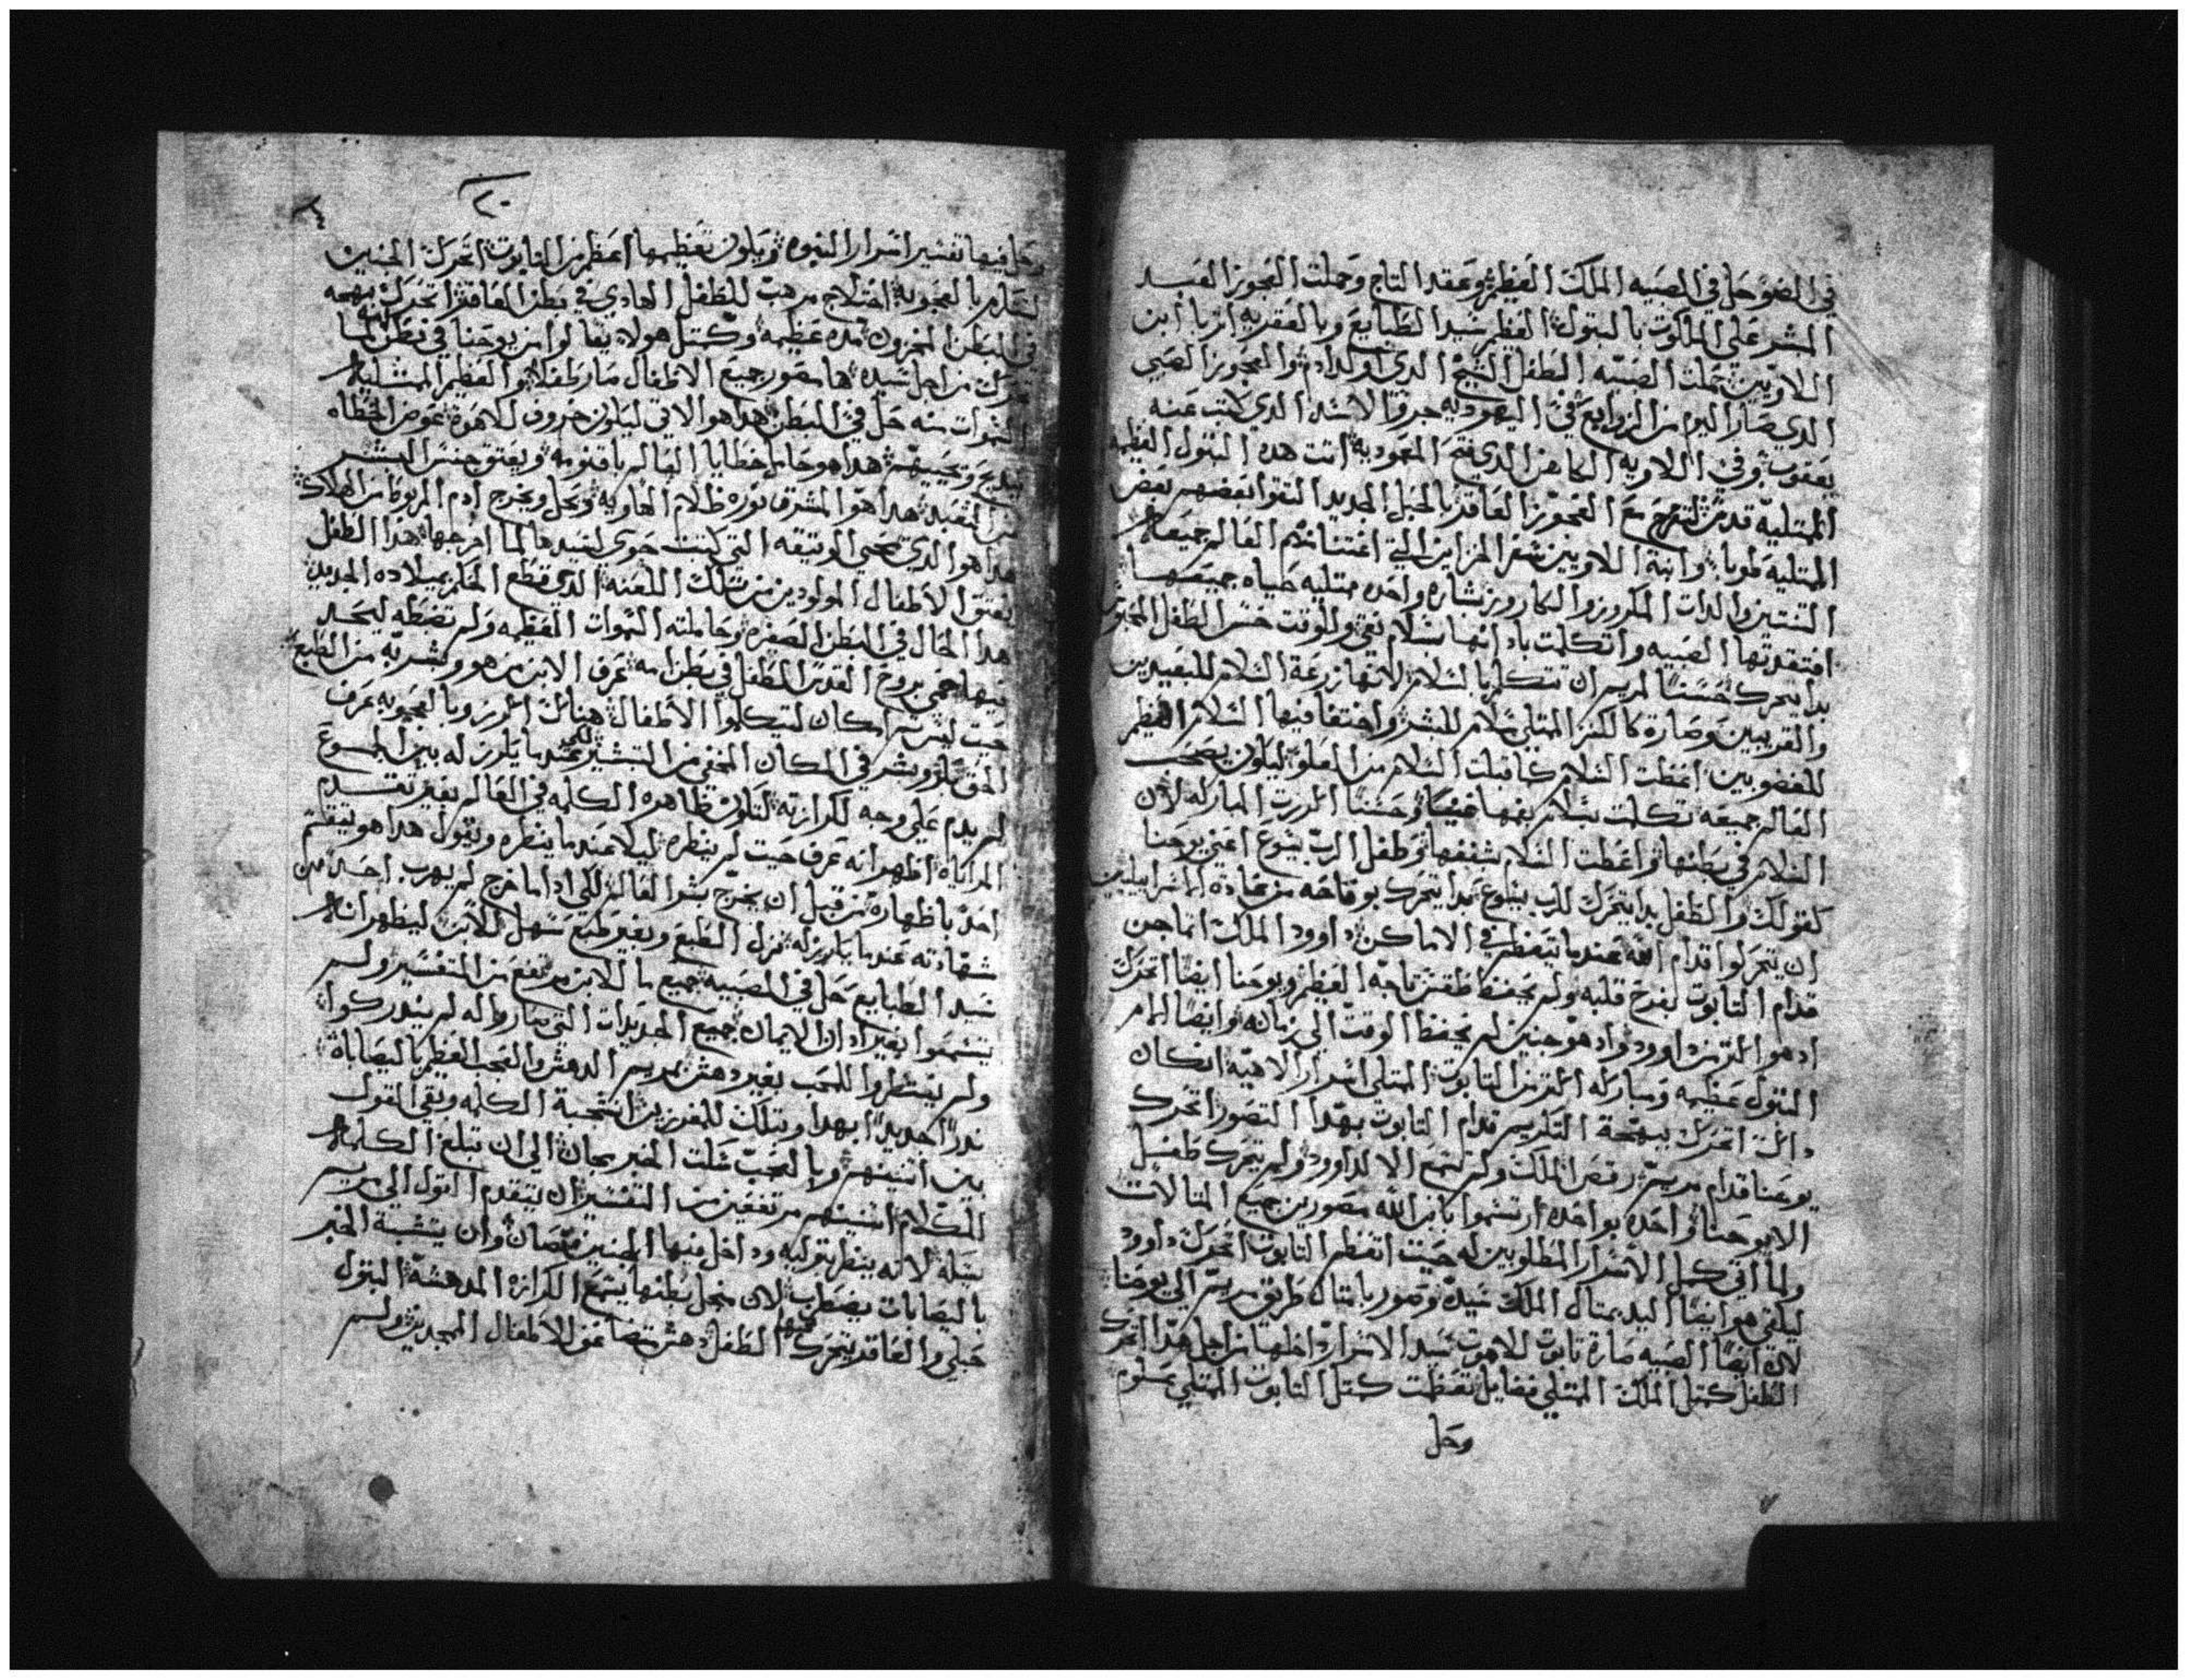 في الضوحل في الصبيه الملك العظيم وعقد التاج وحملت العجوز العبد
المبشر على الملكوت بالبتول العظيم سيد الطبايع وبالعقريه اتربا ابن
اللاويين حملت الصبيه الطفل الشيخ الدي اولد ادم والعجوز الصبي
الدي صار اليوم من الزوابع في اليهوديه جرو الاسد الدي كتب عنه
يعقوب وفي اللاويه الكاهن الدي فتح المعموديه اتت هده البتول العظيمه
الممتليه قدس لتفرح مع العجوز العاقر بالحبل الجديد التقوا بعضهم بعض
الممتليه طوبا وابنة اللاويين شعر المزامير التي اغتنا منهم العالم جميعه
التنتين والدات المكروز والكاروز بشاره واحده ممتليه حياه جميعها
افتقدتها الصبيه واتكلمت بادانها بسلام نقي وللوقت حس الطفل المخبوز
بدا يتحرك حسنا لمريم ان تتكلم بالسلام لانها زرعة السلام للبعيدين
والقريبين وصارة كالكنز الممتلي سلام للبشر واختفا فيها السلام العظيم
للمغضوبين اعطت السلام كما قبلت السلام من العلو ليكون يصحب
العالم جميعه تكلمت بسلام بفمها وحسنا اكررت المباركه لان
السلام في بطنها واعطت السلام بشفتها وطفل الرب يسوع اعني يوحنا
كقولك والطفل بدا يتحرك للرب بينبوع بدا يتحرك بوقاحه من عادة الاسراييليين
ان يتحركوا قدام الله عندما يتعظم في الاماكن داوود الملك انما حجن
قدام التابوت لفرح قلبه ولم يحفظ طقس تاجه العظيم ويوحنا ايضا اتحرك
اد هو اكتر من داوود واد هو جنين لم يحفظ الوقت الى زمانه وايضا ام
البتول عظيمه ومباركه اكتر من التابوت الممتلي اسرار الاهيه ان كان
داك اتحرك ببهجة التكريم قدام التابوت بهدا التصور اتحرك
يوحنا قدام مريم رقص الملك ولم يسمع الا لداوود ولم يتحرك طفل
الا يوحنا واحده بواحده ارتسموا بابن الله مصورين جميع المتالات
ولما اتى كمل الاسرار المطلوبين له حيت اتعظم التابوت اتحرك داوود
ليلقى هو ايضا اليد بمتال الملك سيده وصور بامتال طريق مريم الى يوحنا
لان ايضا الصبيه صارة تابوت للاهوت سيد الاسرار داخلها من اجل هدا اتحرك
الطفل كمتل الملك الممتلي فضايل تعظمت كمتل التابوت الممتلي علوم
وحل
٢٠
وحل فيها تفسير اسرار النبوه ويكون تعظيمها اعظم من التابوت اتحرك الجنين
لسلام بالعجوبة اختلاج مرهب للطفل الهادي في بطن العاقر اتحرك ببهجه
في البطن المخزون مده عظيمه وكتل هولا يقالوا من يوحنا في بطن امه لما
تحرك من اجل سيده ها مصور جميع الاطفال صار طفلا والعظيم الممتليه
السموات منه حل في البطن هدا هو الاتي ليكون خروف للاهوة عوض الخطاه
يبديح ويحييهم هدا هو حامل خطايا العالم باقنومه ويعتق جنس البشر
من التعبد هدا هو المشرق نوره ظلام الهاويه ويحل ويخرج ادم المربوط من الهلاك
هدا هو الدي يمحي الوتيقه التي كتبت حوى لسيدها لما اخرجها هدا الطفل
يعتق الاطفال المولودين من تلك اللعنه الدي قطع الحكم بميلاده الجديد
هدا الحال في البطن الصغره وحاملته السموات العظيمه ولم تضبطه ليحد
فيها حمي بروح القدس الطفل في بطن امه عرف الابن من هو وبشر به من الطبع
حيت ليس امكان ليتكلموا الاطفال هنالك اكرز وبالعجوبه عرف
الحق كرز وبشر في المكان المخفي من التبشير لكي عندما يكرز له بين الجموع
لم يدم على وجه لكرازته لتكون ظاهره الكلمه في العالم بغير تقدم
المراياه اظهر انه عرف حيت لم ينظره ليلا عندما ينظره ويقول هدا هو يتقمقم
احد باظهاره من قبل ان يخرج بشر العالم لكي ادا ما خرج لم يهرب احد من
شهادته عندما يكرز له نزل الطبع وبغير طبع سهل للابن ليظهر انه
سيد الطبايع حل في الصبيه جميع ما للابن مرتفع من التفسير ولم
يتسمعوا بغير ادان الايمان جميع الجديدات التي صاروا له لم يندركوا
ولم ينتظروا للعجب بغير دهش مريم الدهش والعجب العظيم باليصابات
ندرا جديدا بهدا وتلك للمفرزين استحبة الكلمه وبقي القول
بين اتنينهم وبالعجب شلت الخبر بحان الى ان تبلغ الكلمه
للكلام اتنينهم مرتفعين من التفسير ان يتقدم القول الى مريم
نسله لانه ينظر بتوليه وداخل منها الجنين مصان وان يتشبة الخبر
باليصابات يضطرب لان منحل بطنها يسمع الكرازه المدهشه البتول
حبلي والعاقر يتحرك فيها الطفل دهش متضاعف الاطفال الممجدين ولم